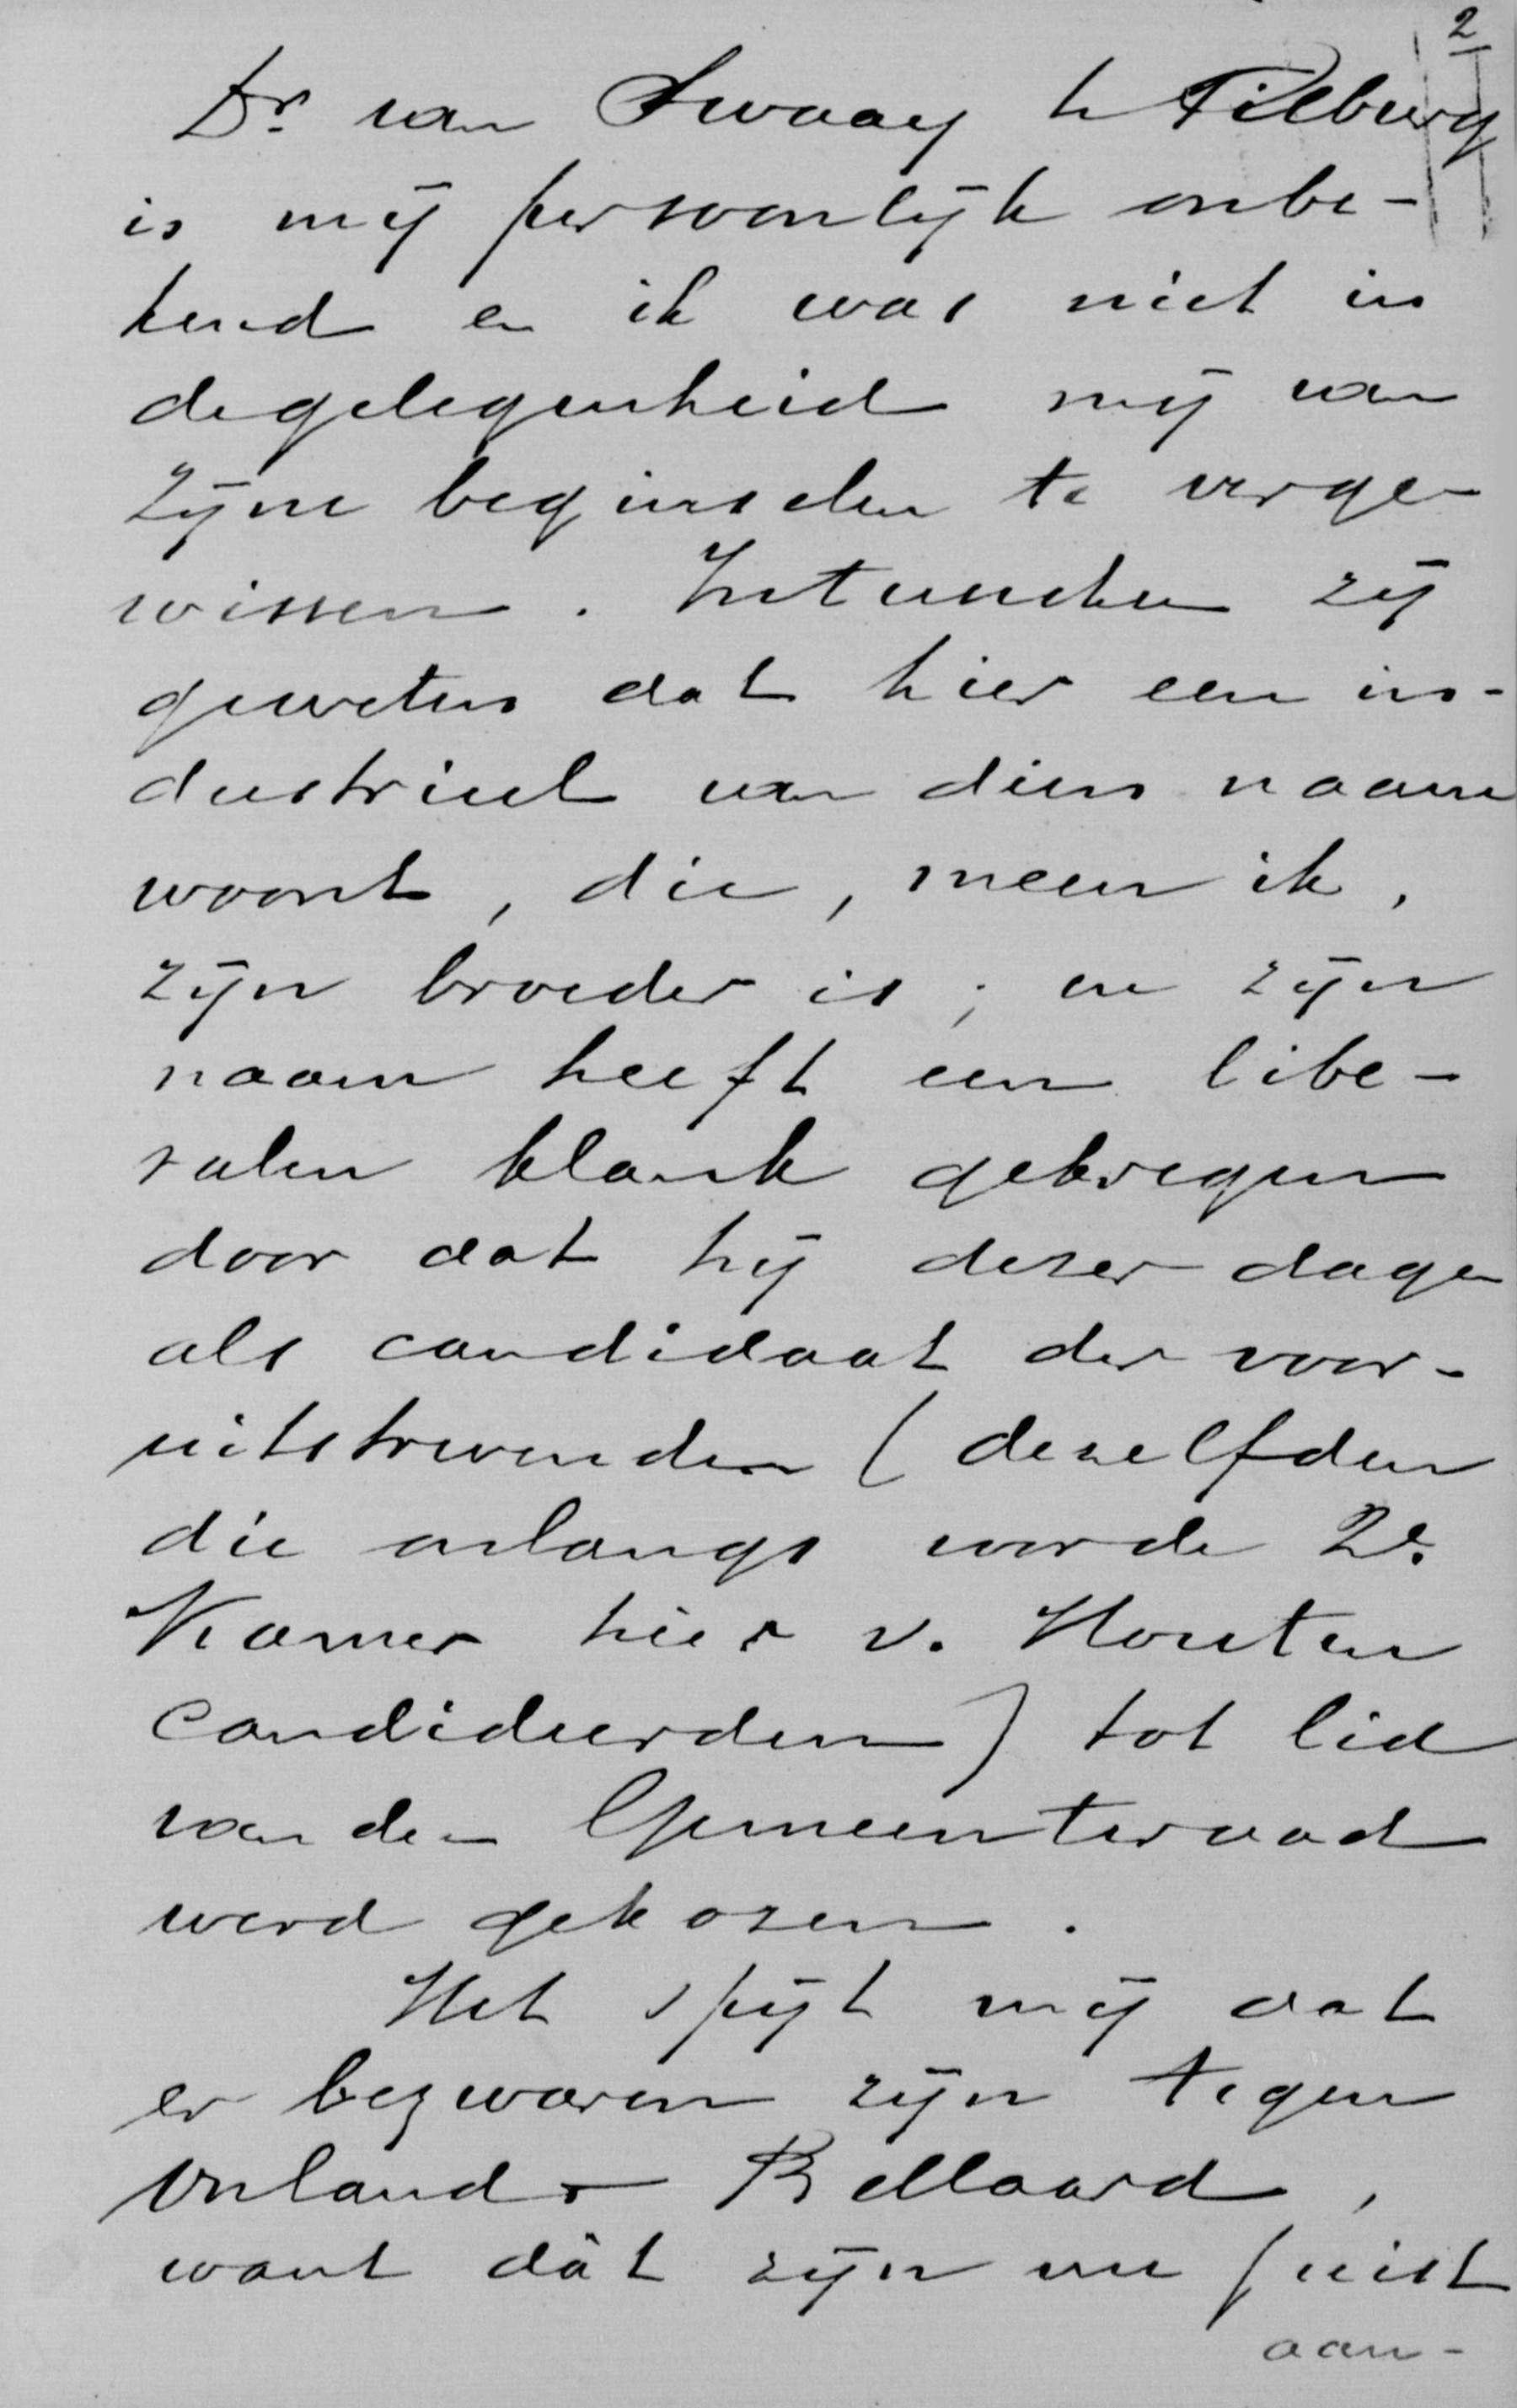 2
Dr. van Swaay te Tilburg
is mij persoonlijk onbe-
kend en ik was niet in
de gelegenheid mij van
zijne beginselen te verge-
wissen. Intusschen zij
geweten dat hier een in-
dustrieel van dien naam
woont, die, meen ik,
zijn broeder is; en zijn
naam heeft een libe-
ralen klank gekregen
door dat hij dezer dagen
als candidaat der voor-
uitstrevenden (dezelfden
die onlangs voor de 2e.
Kamer hier v. Houten
candideerden) tot lid
van den Gemeenteraad
werd gekozen.
Het spijt mij dat
er bezwaren zijn tegen
Bellaard,
want dàt zijn nu juist
aan-